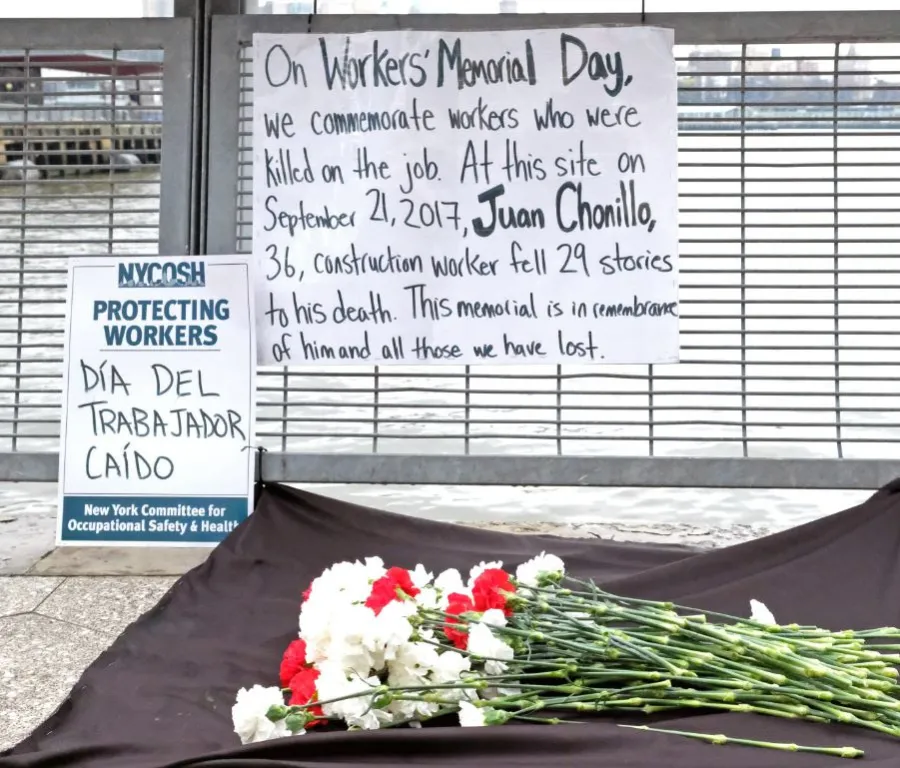 On Workers' Memorial Day,
we commemorate workers who were
killed on the job. At this site on
September 21, 2017, Juan Chonillo,
36, construction worker fell 29 stories
to his death. This memorial is in remembrance
of him and all those we have lost.
NYCOSH
PROTECTING
WORKERS
DÍA DEL
TRABAJADOR
CAÍDO
New York Committee for
Occupational Safety & Health